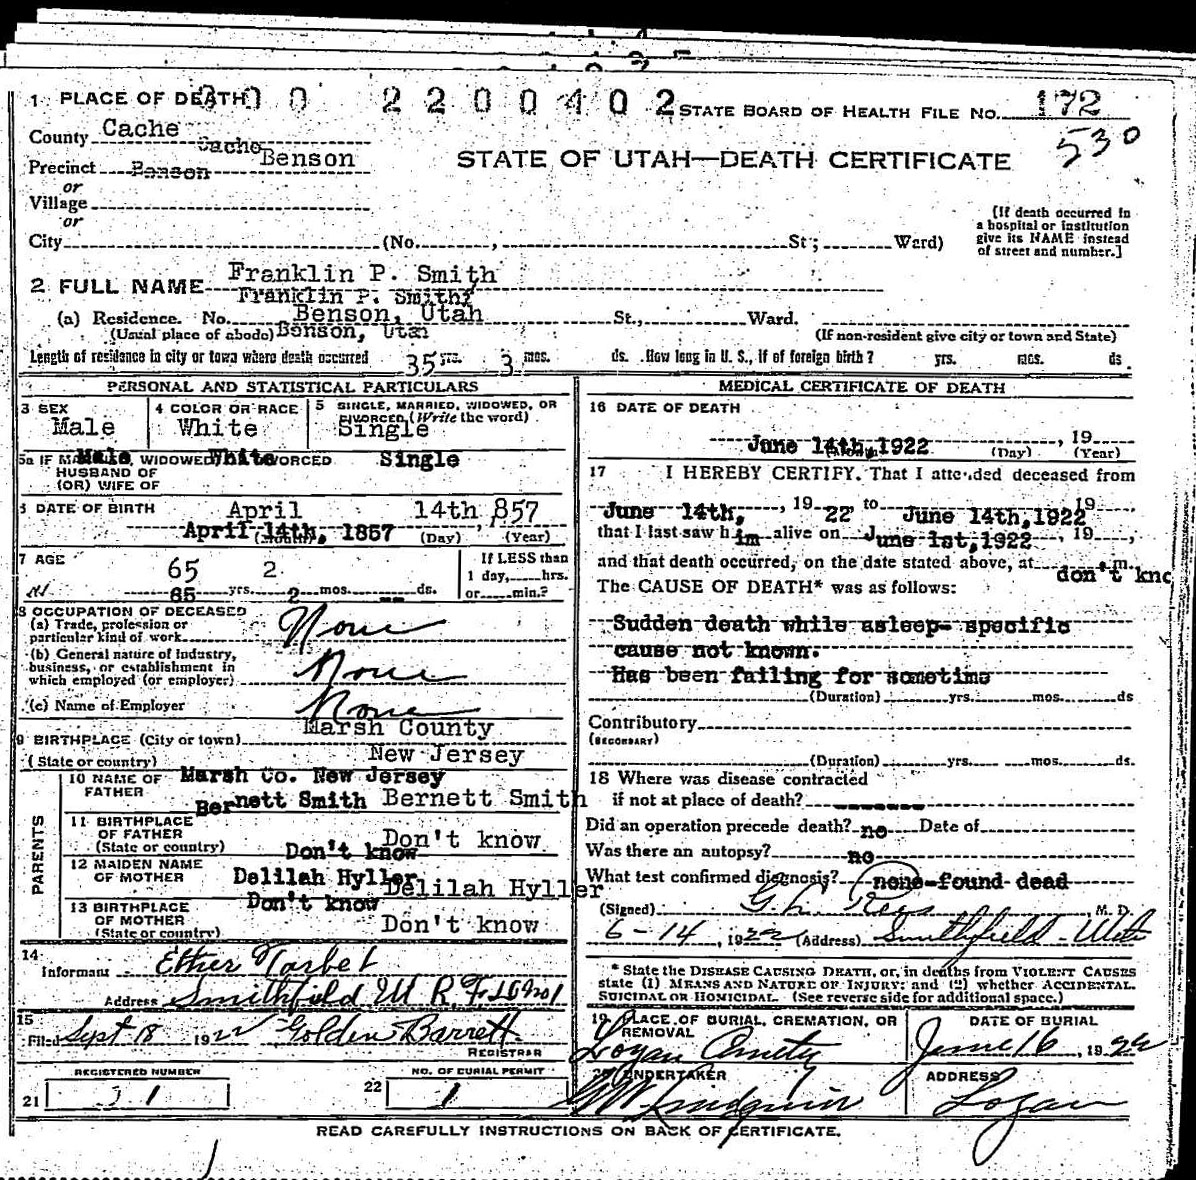 1 PLACE OF DEATH 2200402 STATE BOARD OF HEALTH FILE NO. 172
530
County Cache
Cache
STATE OF UTAH—DEATH CERTIFICATE
Precinct Benson Benson
or
Village
or
City (No. , St.; Ward)
[If death occurred in
a hospital or institution
give its NAME instead
of street and number.]
2 FULL NAME Franklin P. Smith
Franklin P. Smith
(a) Residence. No. Benson, Utah St., Ward.
(Usual place of abode) Benson, Utah (If non-resident give city or town and State)
Length of residence in city or town where death occurred 35 yrs. 3 mos. ds. How long in U. S., if of foreign birth? yrs. mos. ds.
PERSONAL AND STATISTICAL PARTICULARS
3 SEX
Male
4 COLOR OR RACE
White
5 SINGLE, MARRIED, WIDOWED, OR
DIVORCED (Write the word)
Single
Male White Single
5a IF MARRIED, WIDOWED, OR DIVORCED
HUSBAND OF
(OR) WIFE OF
6 DATE OF BIRTH April 14th 1857
April 14th, 1857
(Month) (Day) (Year)
7 AGE
65 2
65 yrs. 2 mos. ds.
If LESS than
1 day, hrs.
or min.?
8 OCCUPATION OF DECEASED
(a) Trade, profession or
particular kind of work None
(b) General nature of industry,
business, or establishment in
which employed (or employer) None
(c) Name of Employer None
Marsh County
9 BIRTHPLACE (City or town)
(State or country) New Jersey
Marsh Co. New Jersey
PARENTS
10 NAME OF
FATHER Bernett Smith Bernett Smith
11 BIRTHPLACE
OF FATHER
(State or country) Don't know
Don't know
12 MAIDEN NAME
OF MOTHER Delilah Hyller
Delilah Hyller
13 BIRTHPLACE
OF MOTHER
(State or country) Don't know
Don't know
14
Informant Ether Tarbet
Address Smithfield
15
Filed Sept 18 1922 Golden Barrett
REGISTRAR
REGISTERED NUMBER
21 31
NO. OF BURIAL PERMIT
22 1
MEDICAL CERTIFICATE OF DEATH
16 DATE OF DEATH
June 14th, 1922 , 19
(Month) (Day) (Year)
17 I HEREBY CERTIFY. That I attended deceased from
June 14th, , 19 22 to June 14th, 1922 19
that I last saw him alive on June 1st, 1922 , 19 ,
and that death occurred, on the date stated above, at m.
don't kno
The CAUSE OF DEATH* was as follows:
Sudden death while asleep- specific
cause not known.
Has been failing for sometime
(Duration) yrs. mos. ds
Contributory
(SECONDARY)
(Duration) yrs. mos. ds.
18 Where was disease contracted
if not at place of death?
Did an operation precede death? no Date of
Was there an autopsy? no
What test confirmed diagnosis? none-found dead
(Signed) M. D.
6-14, 1922 (Address) Smithfield - Utah
* State the DISEASE CAUSING DEATH, or, in deaths from VIOLENT CAUSES
state (1) MEANS AND NATURE OF INJURY; and (2) whether ACCIDENTAL
SUICIDAL OR HOMICIDAL. (See reverse side for additional space.)
19 PLACE OF BURIAL, CREMATION, OR
REMOVAL
Logan
DATE OF BURIAL
June 16, 1922
20 UNDERTAKER
ADDRESS
Logan
READ CAREFULLY INSTRUCTIONS ON BACK OF CERTIFICATE.